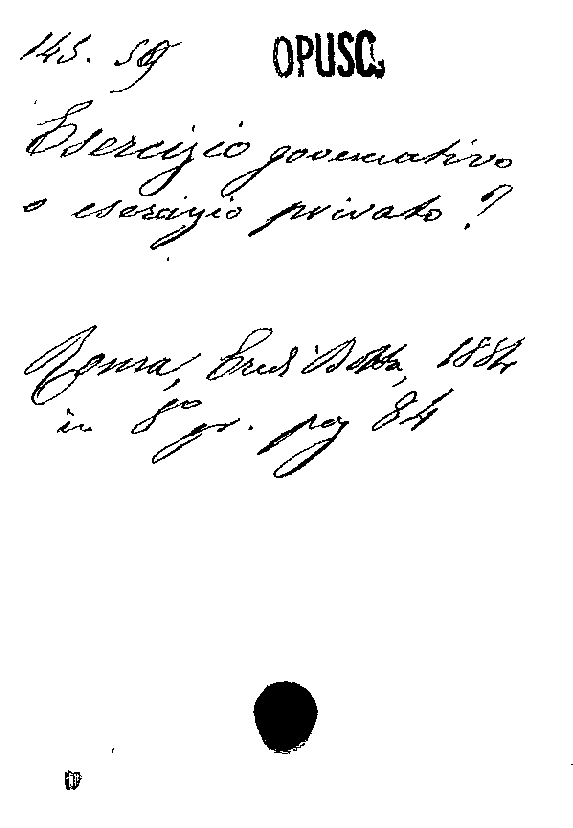 145. 59 OPUSC.
Esercizio governativo
o esercizio privato?
Roma, Eredi Botta, 1884
in 8° gr. pag 84